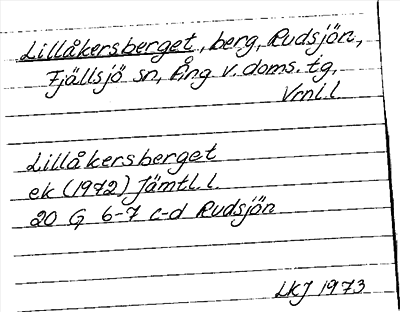 Lillåkersberget, berg, Rudsjön,
Fjällsjö sn, Ång v. doms. tg,
Vrnl. l.
Lillåkersberget
ek (1972) Jämtl. l.
20 G 6-7 c-d Rudsjön
LKJ 1973